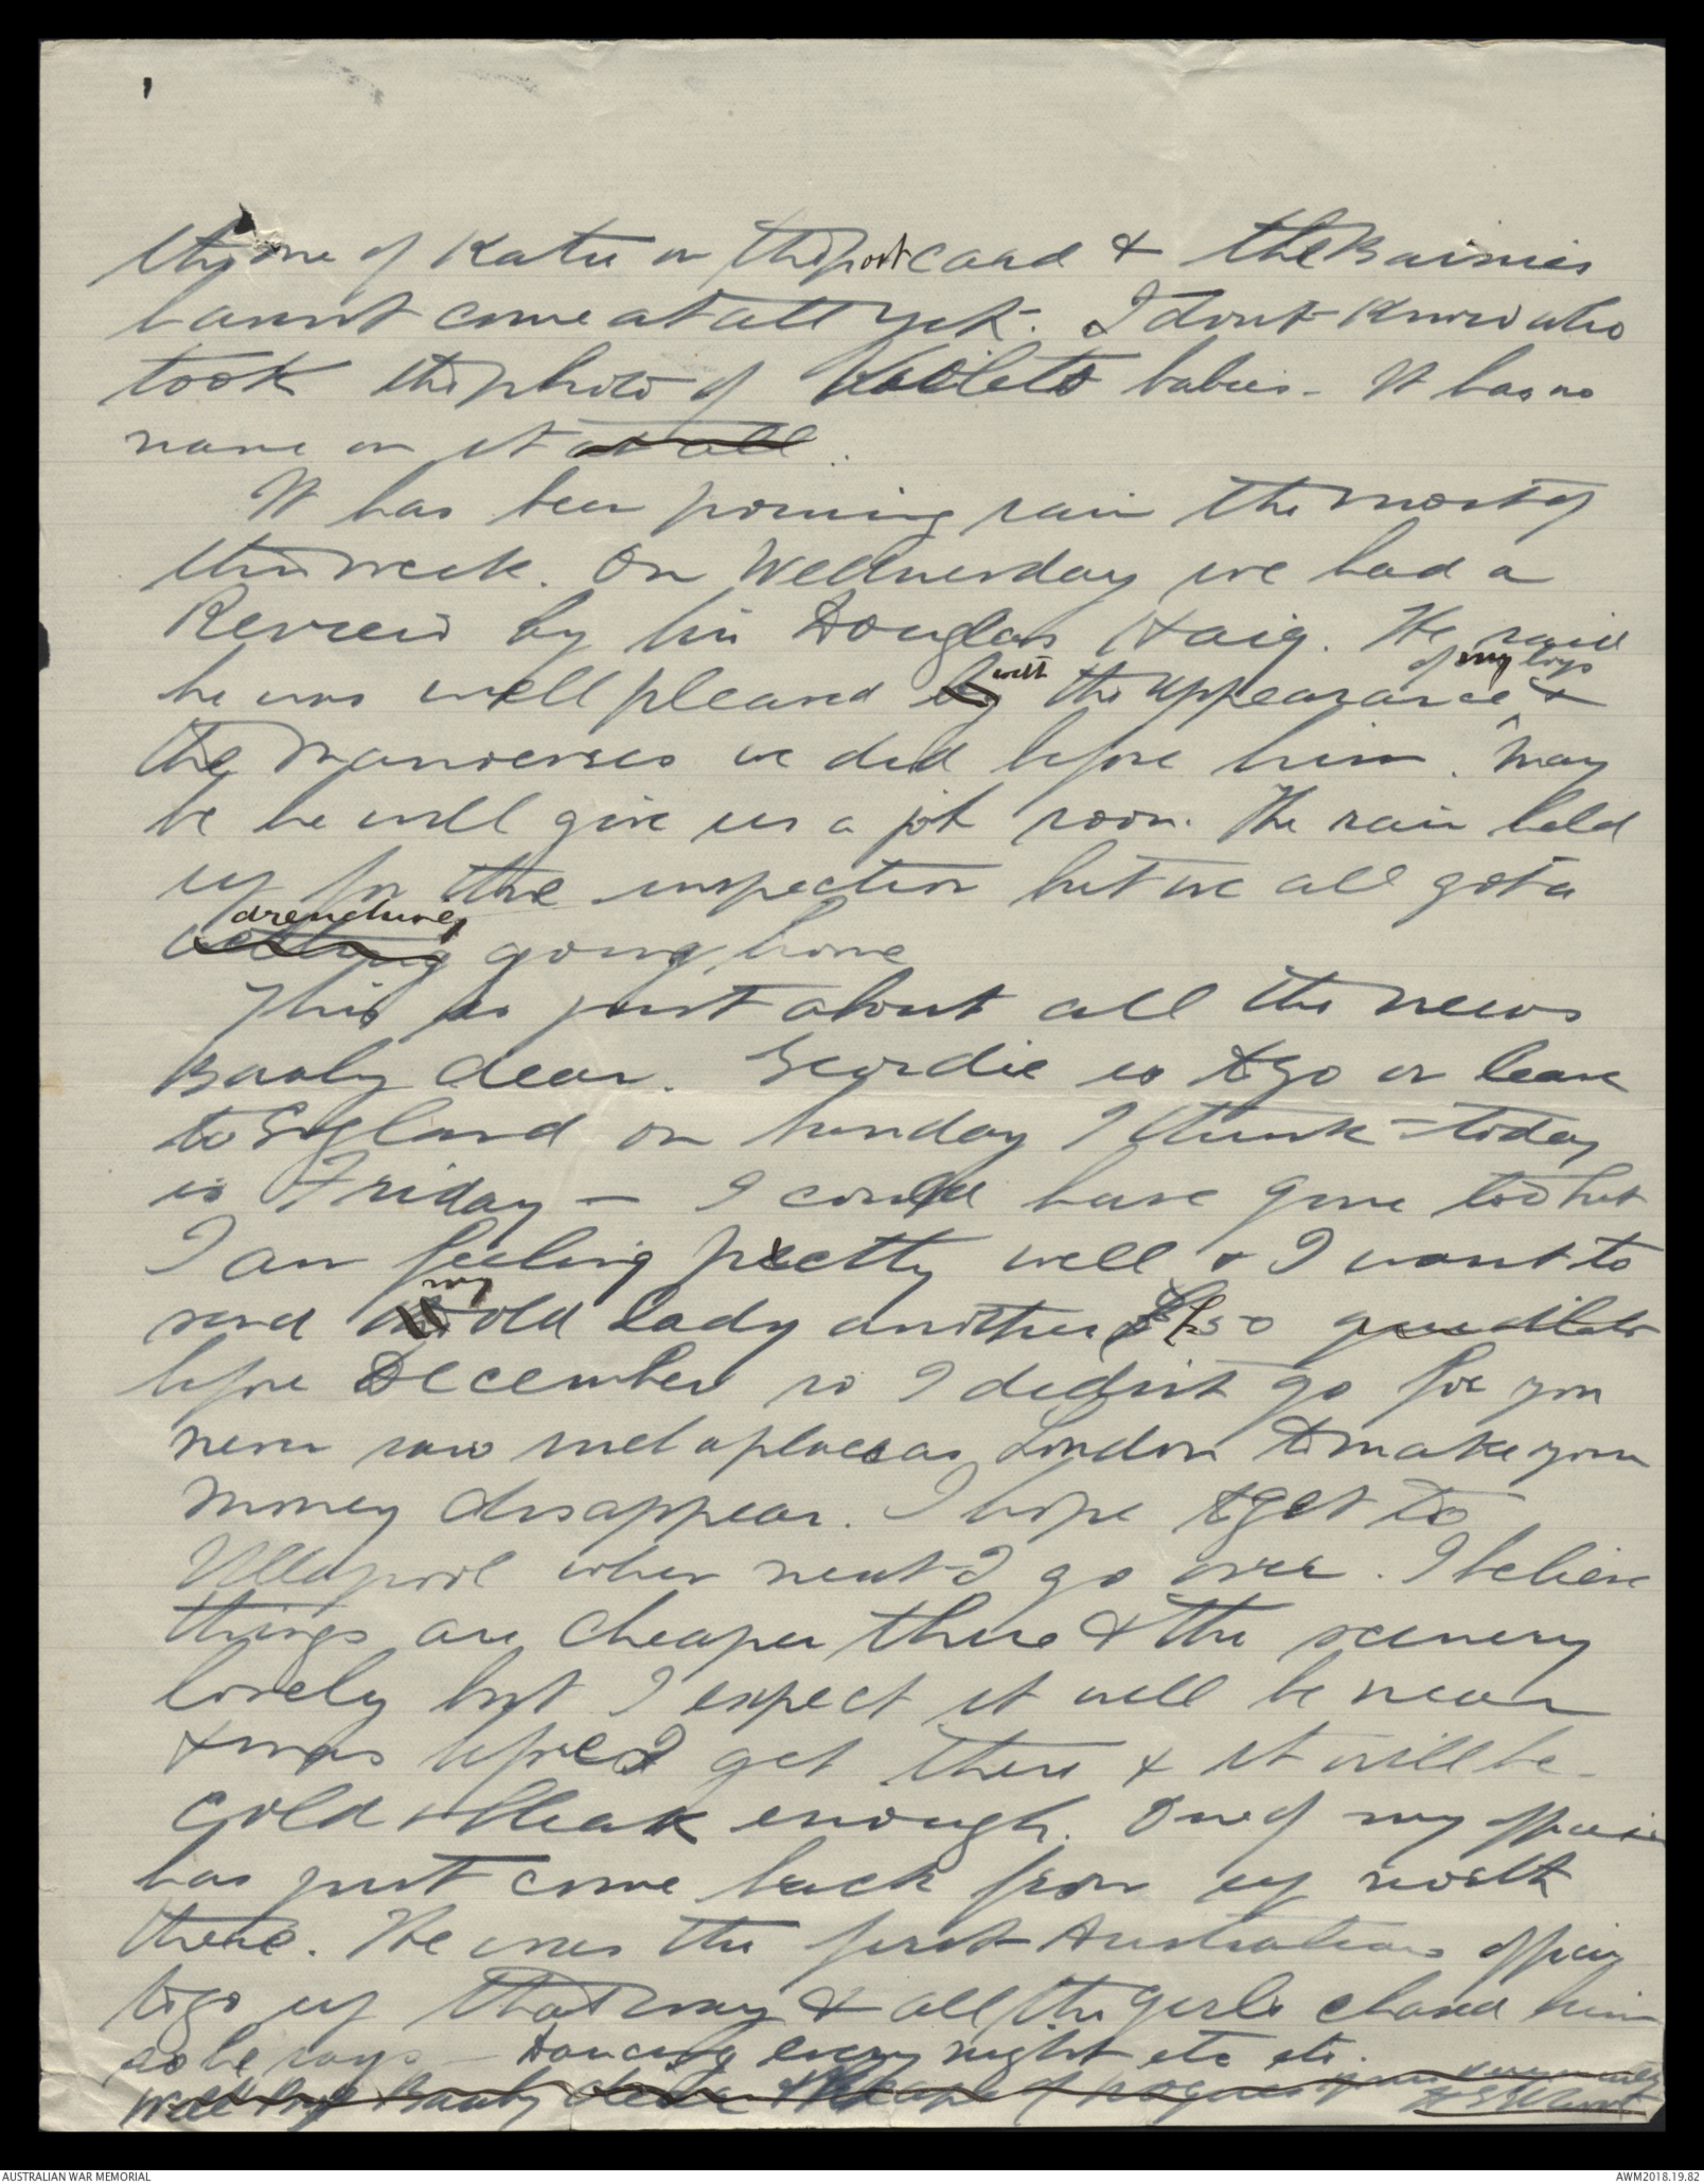 the one of Katie on the post card & the Bairnies
hasn't come at all yet. I dont know who
took the photo of Violets babies - It has no
name on it at all.
It has been pouring rain the most of
this week. On Wednesday we had a
Review by Sir Douglas Haig. He said
he was well pleased by with the appearance of my boys &
the manoevres we did before him. May
be he will give us a job soon. The rain held
up for the inspection but we all got a
wetting drenching going home
This is just about all the news
Baaby dear. Geordie is to go on leave
to England on Sunday I think - today
is Friday - I could have gone too but
I am feeling pretty well & I want to
send my old Lady another £50
before December so I didn't go for you
never saw such a place as London to make your
money disappear. I hope to get to
Ullapool when next I go over. I believe
things are cheaper there & the scenery
lovely but I expect it will be near
Xmas before I get there & it will be
cold & bleak enough. One of my officers
has just come back from up north
there. He was the first Australian officer
to go up that way & all the girls chased him
so he says - Dancing every night etc etc.
Well Bye Baaby dear & Heaps of